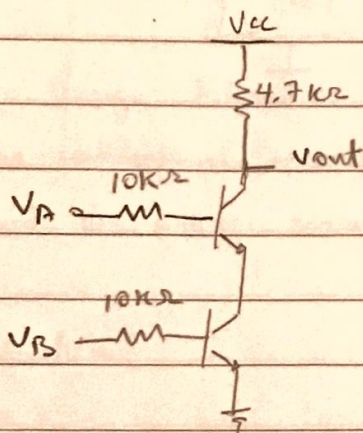 Vcc
4.7KΩ
Vout
10KΩ
VA
10KΩ
VB